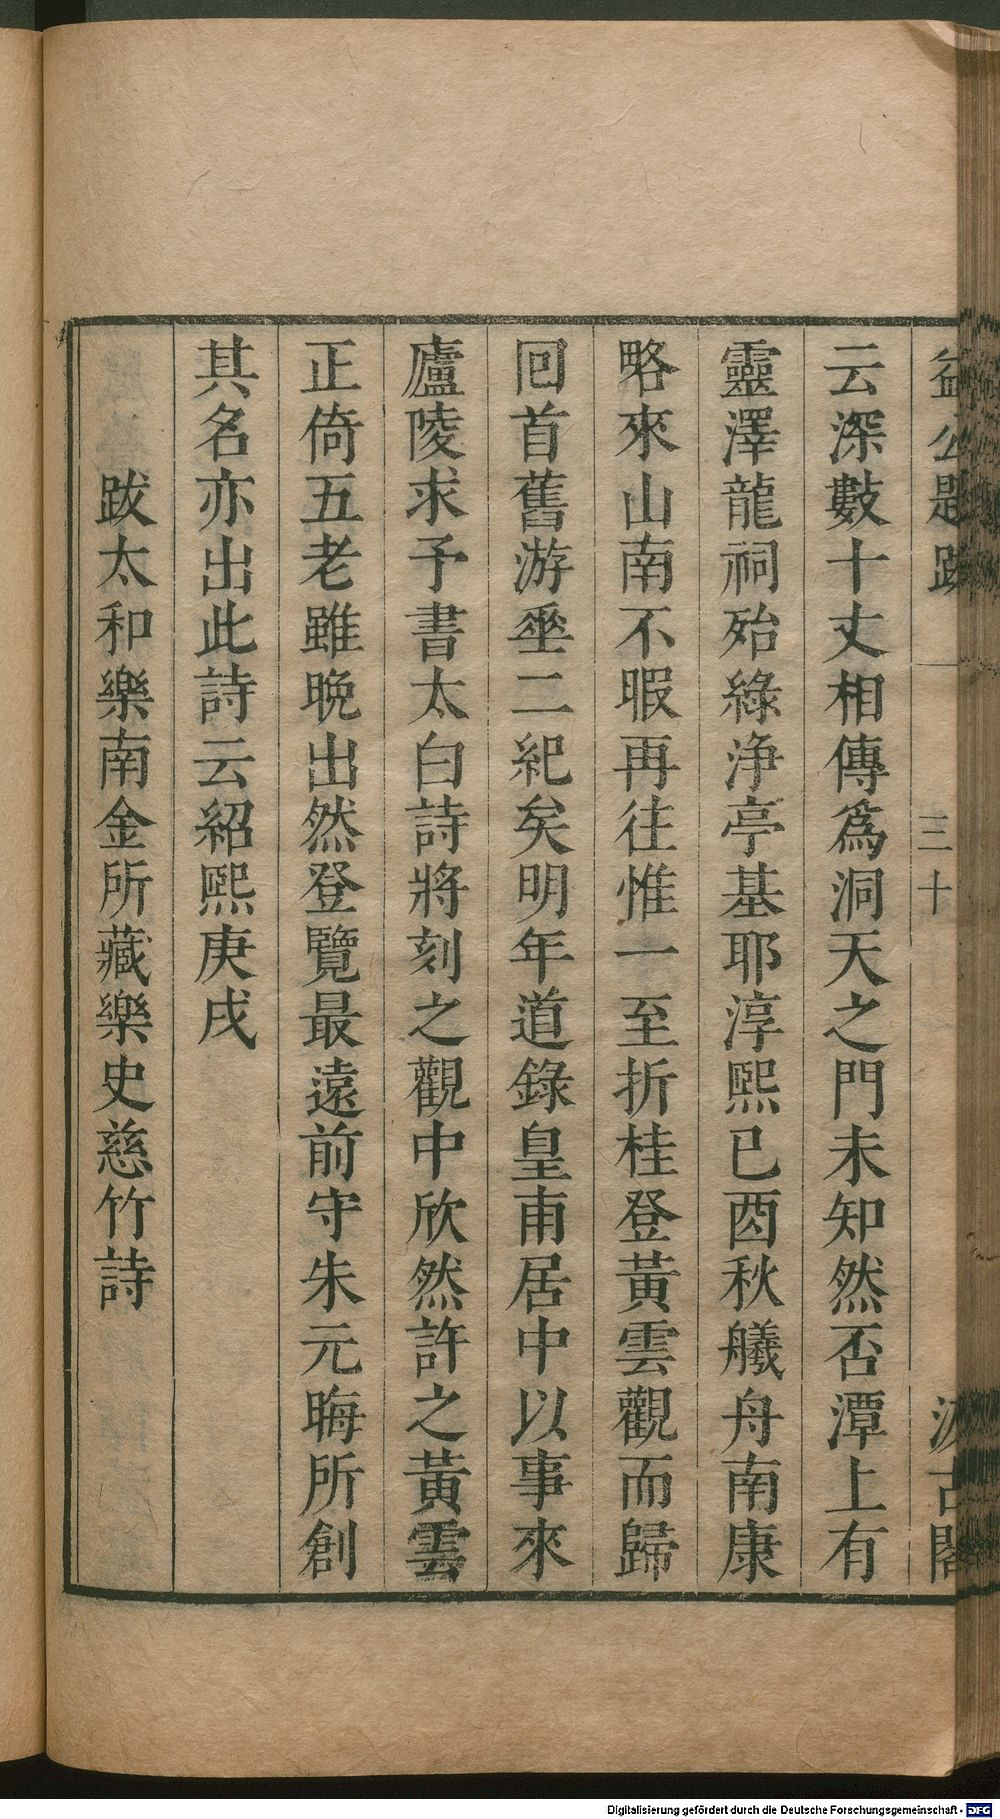 益公題跋 三十 汲古閣
云深數十丈相傳爲洞天之門未知然否潭上有
靈澤龍祠殆綠淨亭基耶淳熙已酉秋艤舟南康
略來山南不暇再往惟一至折桂登黃雲觀而歸
回首舊游垩二紀矣明年道錄皇甫居中以事來
廬陵求予書太白詩將刻之觀中欣然許之黃雲
正倚五老雖晚出然登覽最遠前守朱元晦所創
其名亦出此詩云紹熙庚戌
跋太和樂南金所藏樂史慈竹詩
Digitalisierung gefördert durch die Deutsche Forschungsgemeinschaft - DFG